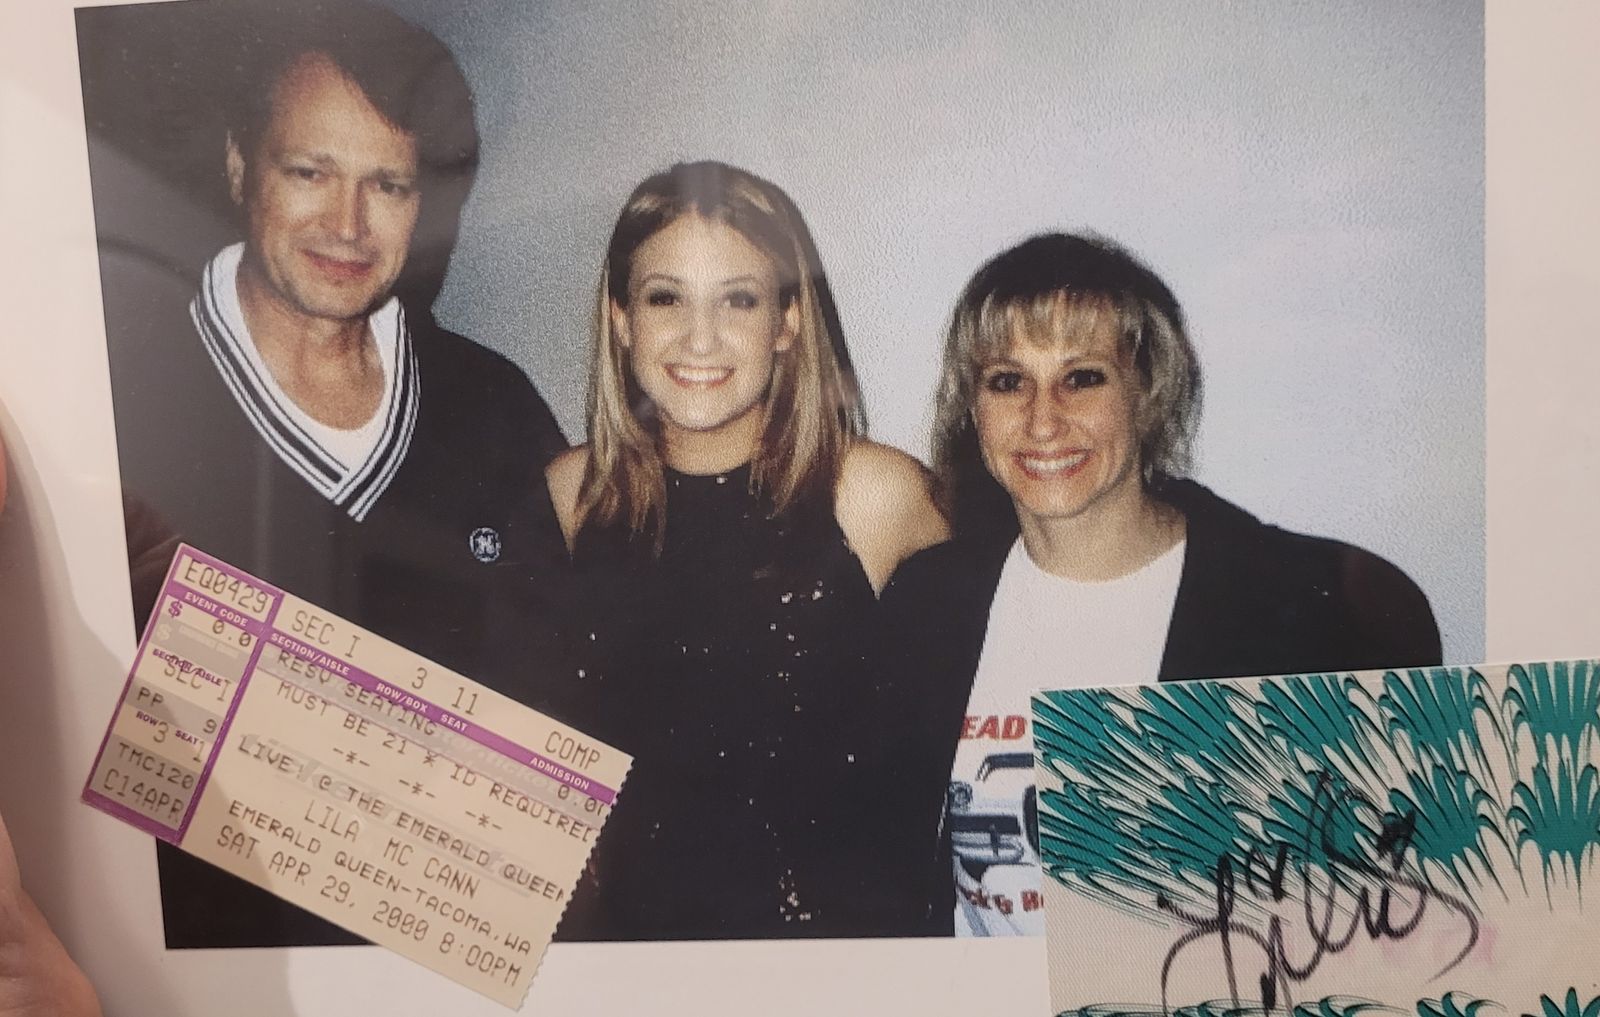 EQ0429
EVENT CODE
$ 0.0
SECTION/AISLE
SEC I
PP 9
ROW SEAT
3 1
TMC120
C14APR
SEC I 3 11 COMP
SECTION/AISLE ROW/BOX SEAT ADMISSION
RESV SEATING 0.00
MUST BE 21 * ID REQUIRED
-*- -*- -*-
LIVE! @ THE EMERALD QUEEN
LILA MC CANN
EMERALD QUEEN-TACOMA,WA
SAT APR 29, 2000 8:00PM
EAD